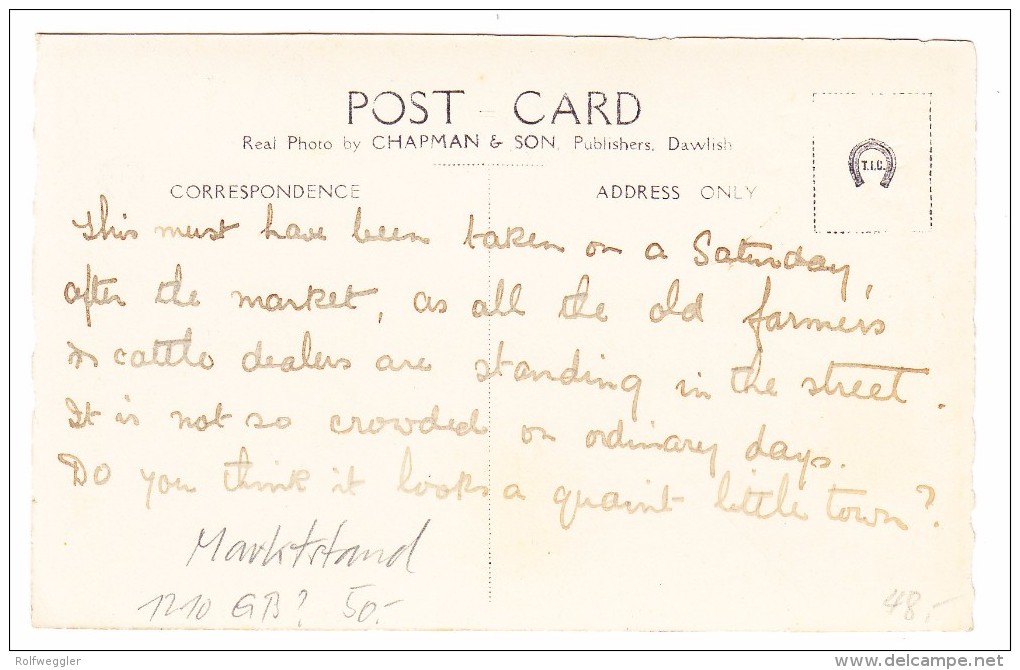 POST CARD
Real Photo by CHAPMAN & SON, Publishers, Dawlish
T.I.C.
CORRESPONDENCE
ADDRESS ONLY
This must have been taken on a Saturday,
after the market, as all the old farmers
& cattle dealers are standing in the street.
It is not so crowded on ordinary days.
Do you think it looks a quaint little town?
Marktstand
1210 GB? 50.-
48.-
Rolfweggler
delcampe.net